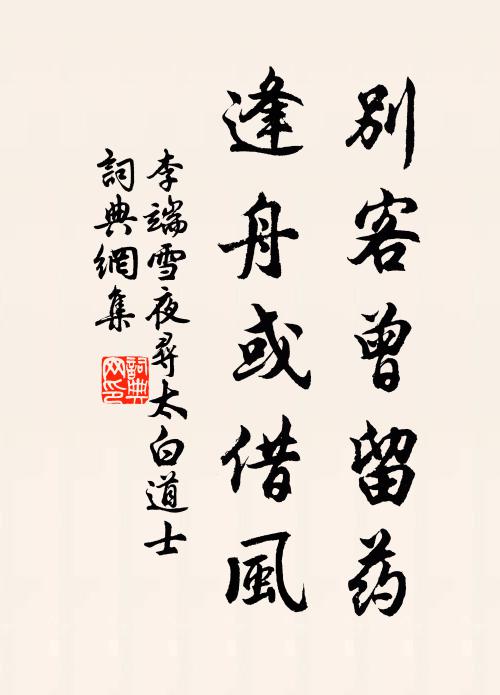 别客曾留药
逢舟或借風
李端雪夜尋太白道士
詞典網集
詞典網印